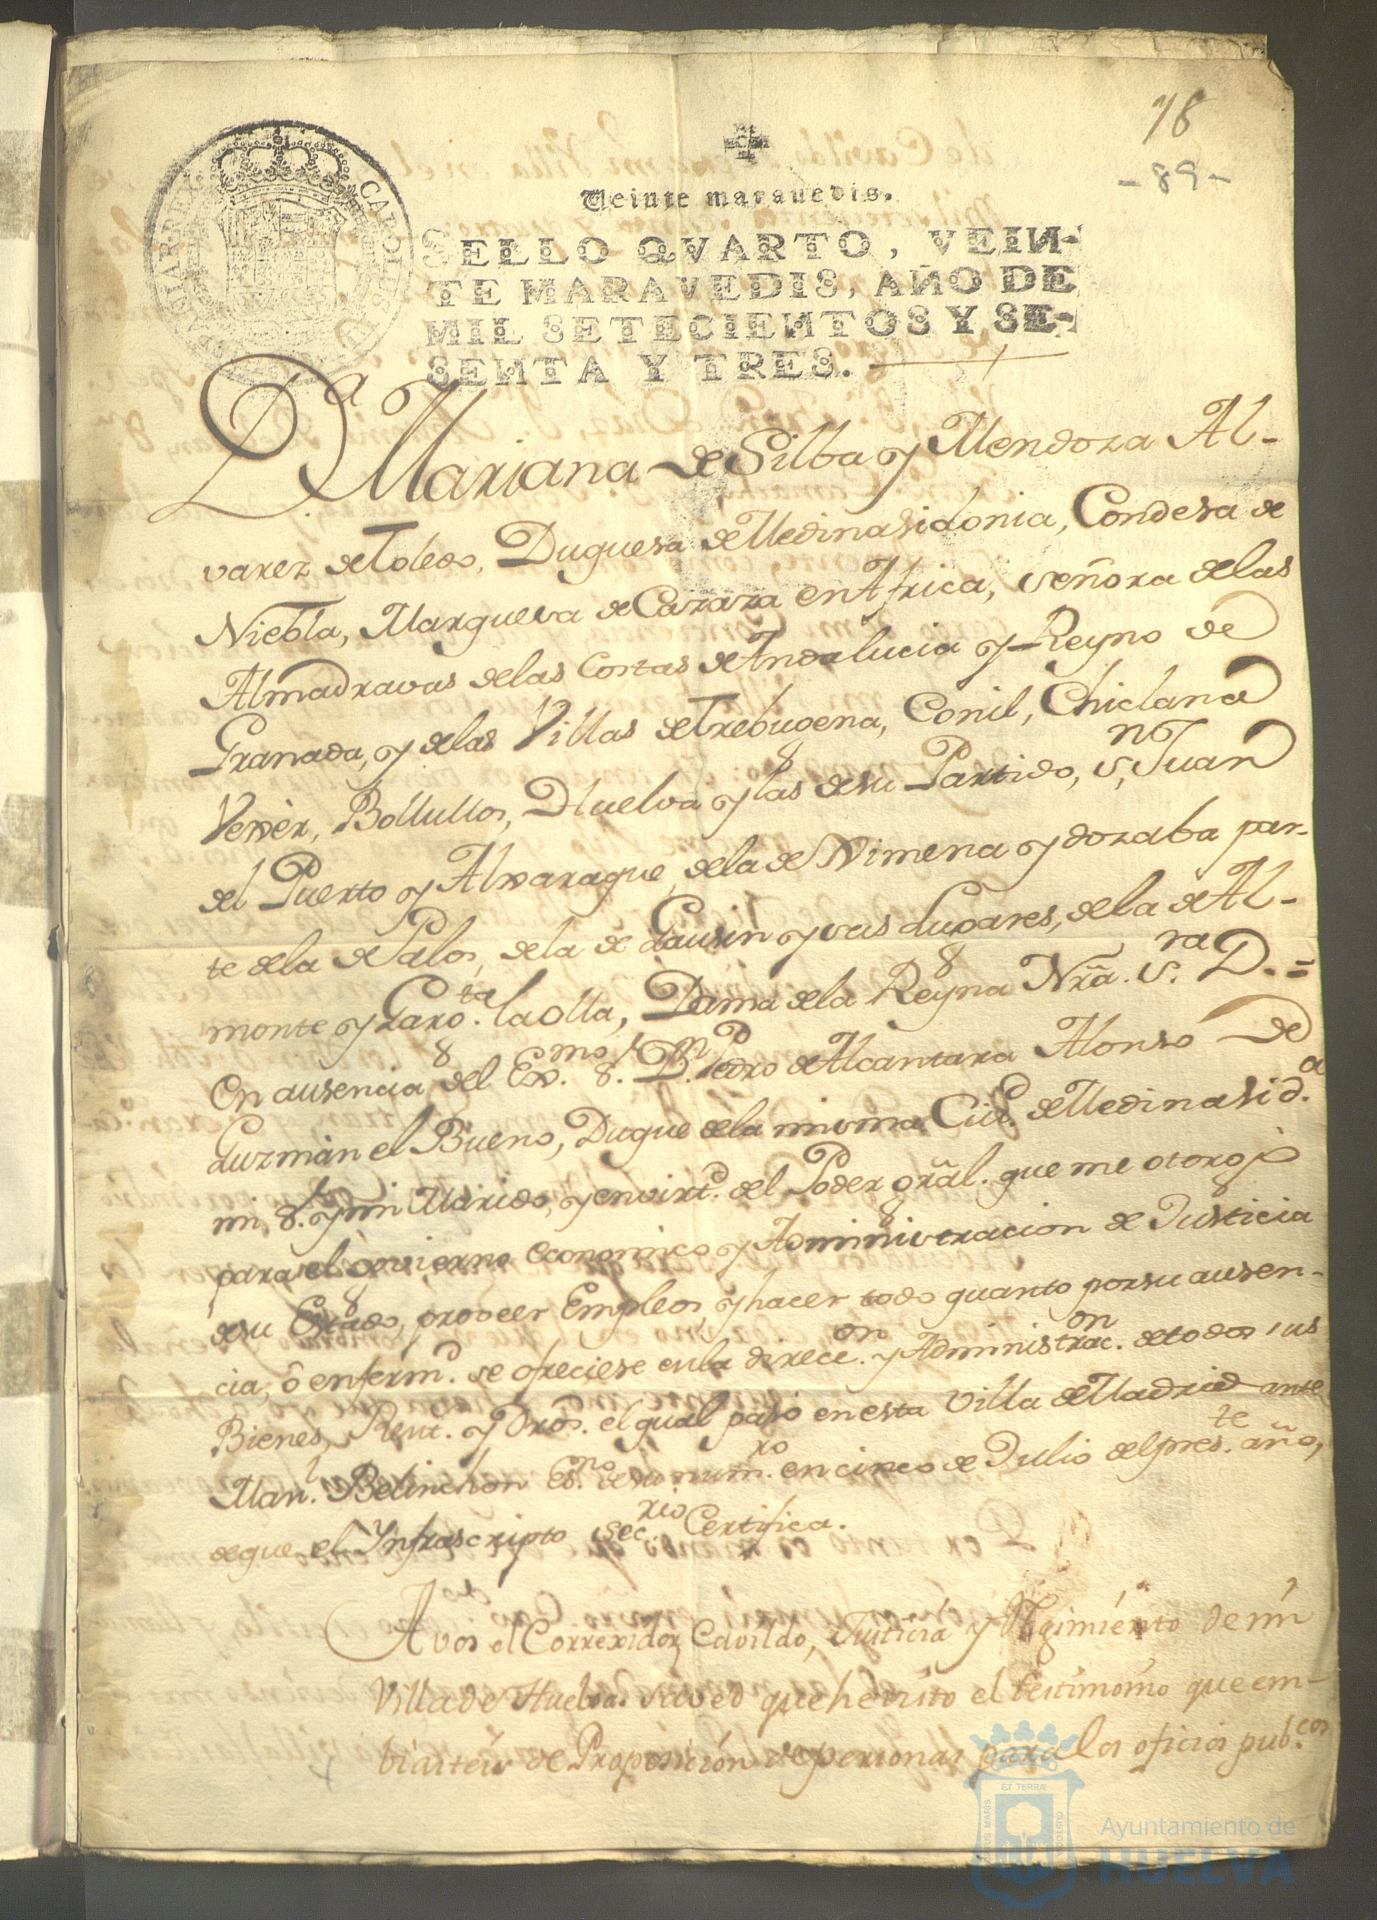 78
- 89 -
Veinte marauedis.
SELLO QVARTO, VEIN-
TE MARAVEDIS, AÑO DE
MIL SETECIENTOS Y SE-
SENTA Y TRES.
D.ª Mariana de Silba y Mendoza Al-
varez de Toledo, Duquesa de Medinasidonia, Condesa de
Niebla, Marquesa de Cazaza en Africa, señora de las
Almadravas de las Costas de Andalucia y Reyno de
Granada, y de las Villas de Trebugena, Conil, Chiclana
Vexèr, Bollullos, Huelva y las de su Partido, S.n Juan
del Puerto y Alxaraque, de la de Ximena y dozaba par-
te de la de Palos, de la de Gausin y sus Lugares, de la de Al-
monte y la Olla, Dama de la Reyna Nrã. S.ra D. =
En ausencia del Ex.mo S.r D.n Pedro de Alcantara Alonso de
Guzmàn el Bueno, Duque de la misma Ciu.d de Medinasid.a
mi S.r y mi Marido, y en virt.d del Poder grãl. que me otorgò
para el govierno economico y Administracion de Justicia
de su Estado, proveer Empleos, y hacer todo quanto por su ausen-
cia, ô enferm.d se ofreciese en la direcc.on y Administrac.on de todos sus
Bienes, Rent.s y Drõs. el qual pasò en esta Villa de Madrid ante
Man.l Belinchon Es.no de su num.ro en cinco de Julio del pres.te año,
de que el Ynfrascripto Sec.rio Certifica.
A vos el Correxidor, Cavildo, Justicia y Regimiento de mi
Villa de Huelva. Saved que he visto el testimonio que em-
biasteis de Proposicion de personas para los oficios pub.cos
ET TERRÆ
Ayuntamiento de
HUELVA